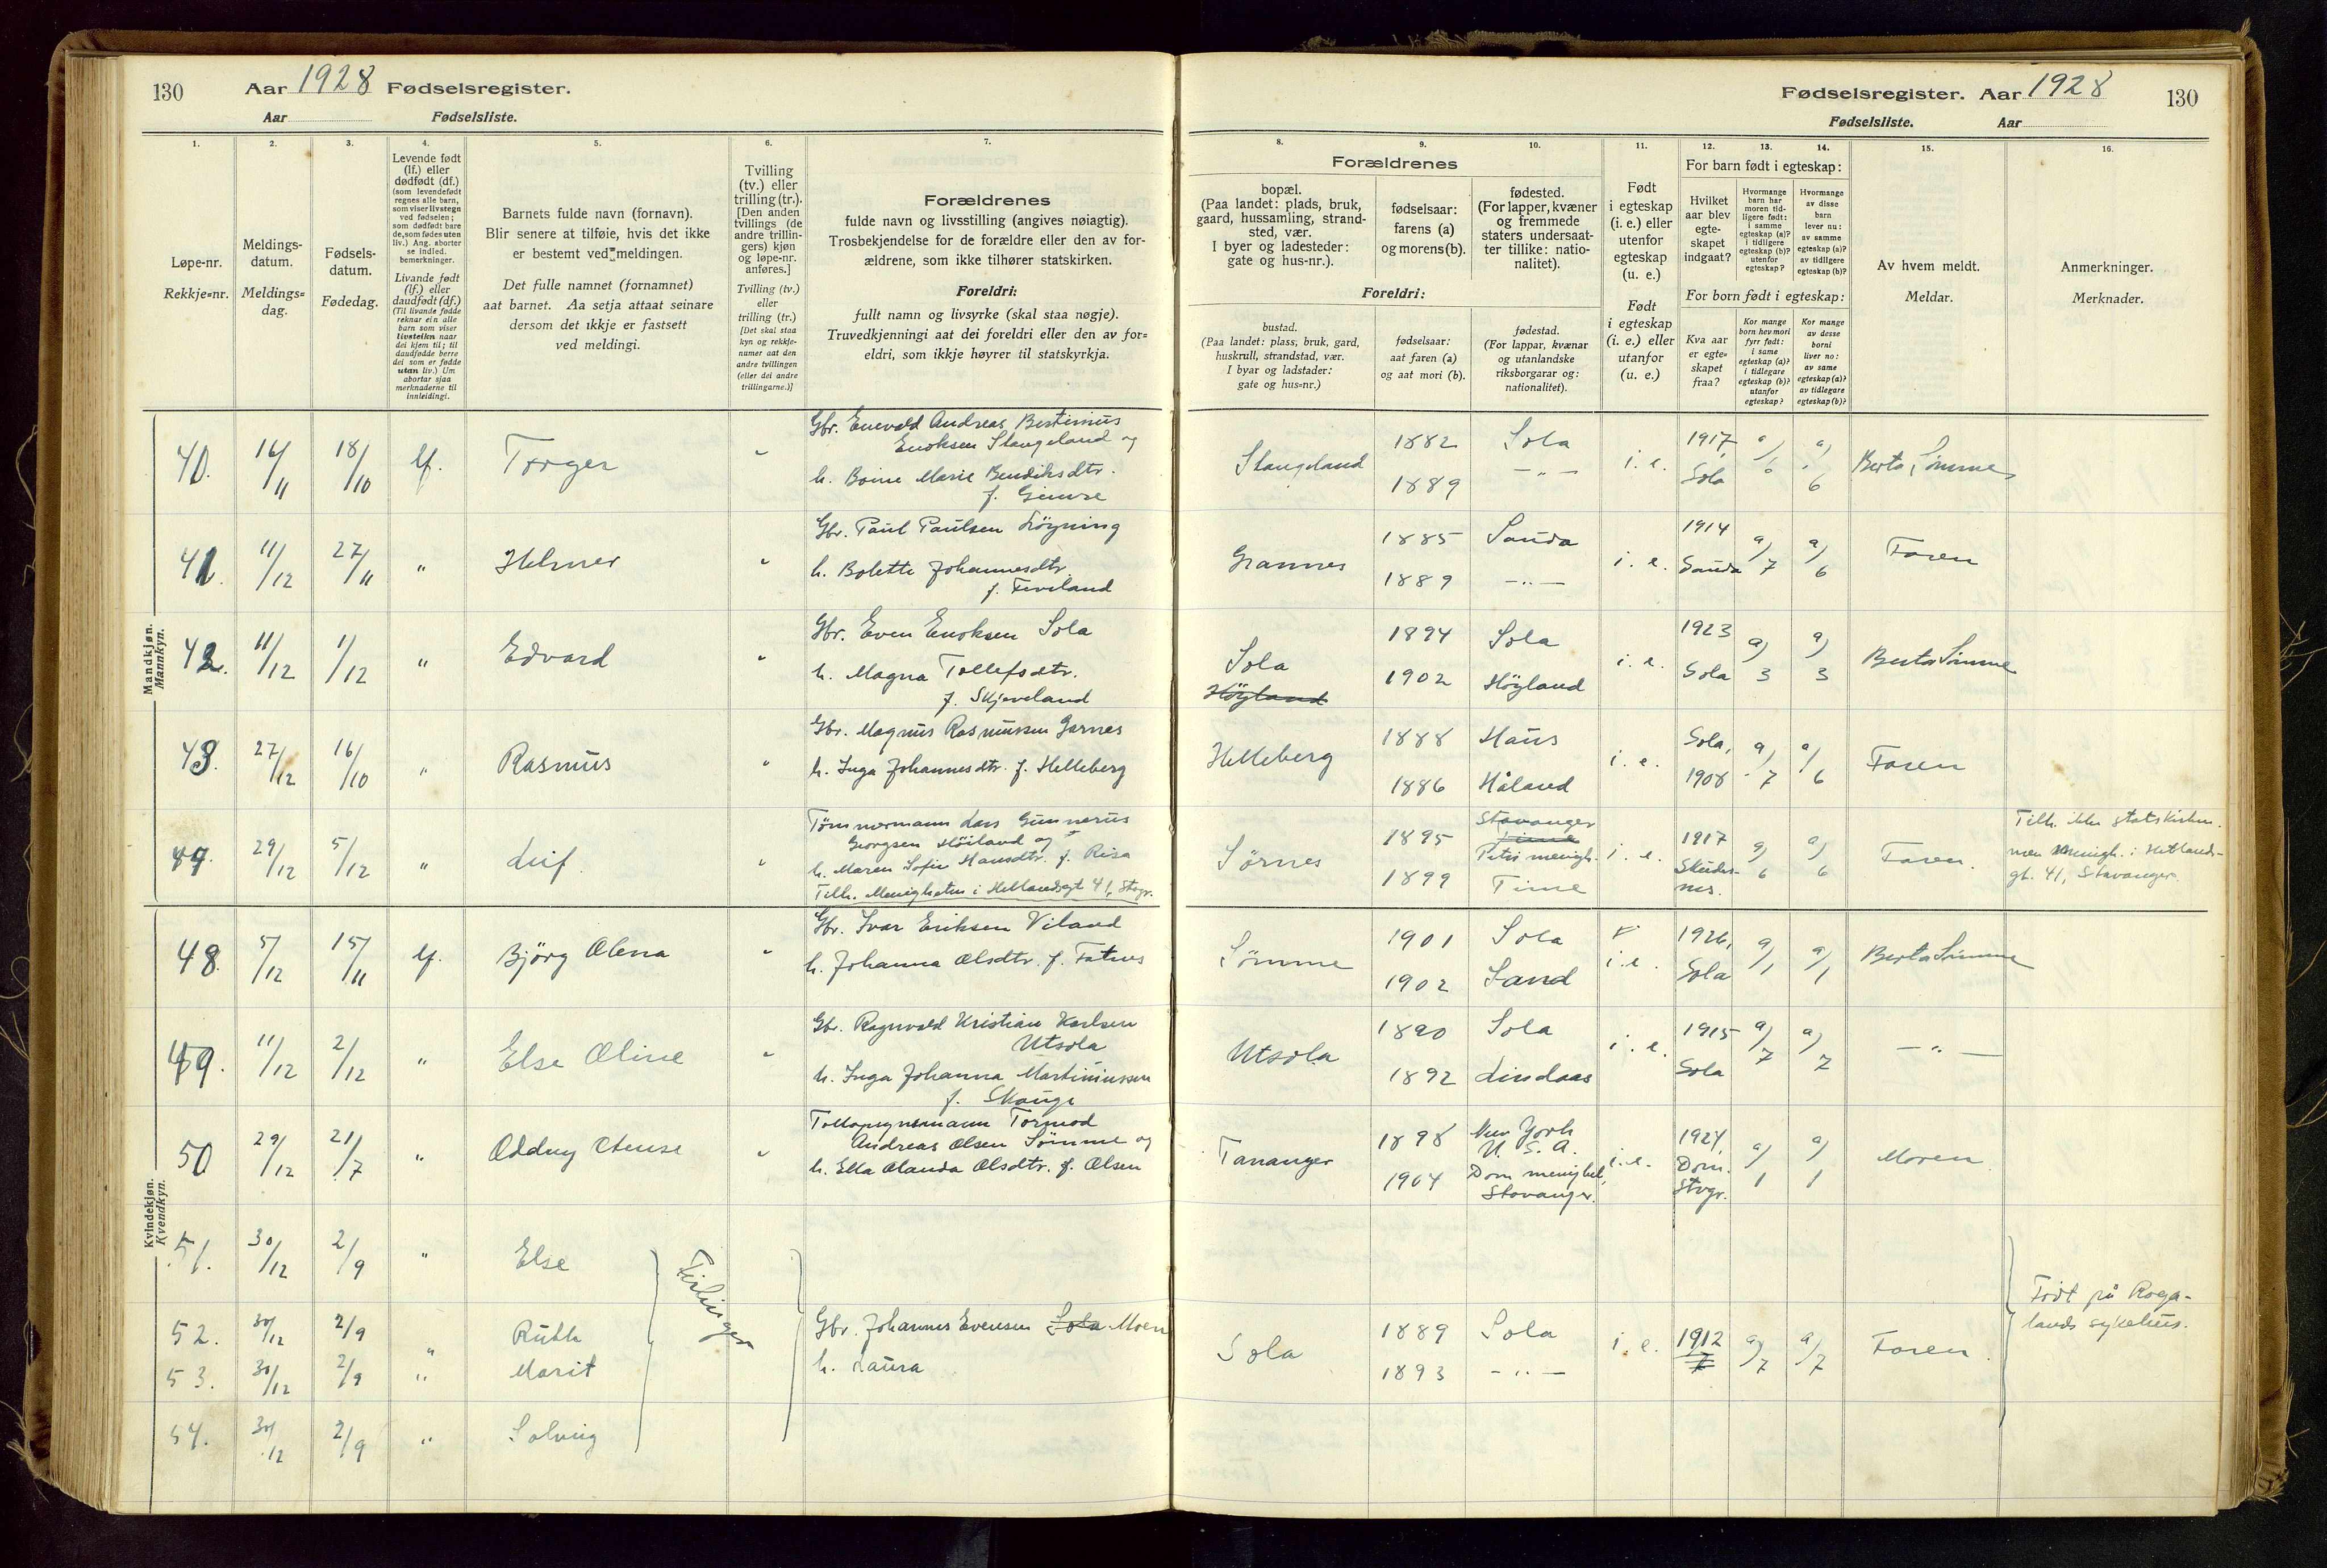 130 Aar 1928 Fødselsregister.
Aar Fødselsliste.
Fødselsregister. Aar 1928 130
Fødselsliste. Aar
1.
Løpe-nr.
Rekkje=nr.
2.
Meldings-
datum.
Meldings=
dag.
3.
Fødsels-
datum.
Fødedag.
4.
Levende født
(lf.) eller
dødfødt (df.)
(som levendefødt
regnes alle barn,
som viser livstegn
ved fødselen;
som dødfødt bare
de, som fødes uten
liv.) Ang. aborter
se indled.
bemerkninger.
Livande født
(lf.) eller
daudfødt (df.)
(Til livande fødde
reknar ein alle
barn som viser
livsteikn naar
dei kjem til; til
daudfødde berre
dei som er fødde
utan liv.) Um
abortar sjaa
merknaderne til
innleidingi.
5.
Barnets fulde navn (fornavn).
Blir senere at tilføie, hvis det ikke
er bestemt ved meldingen.
Det fulle namnet (fornamnet)
aat barnet. Aa setja attaat seinare
dersom det ikkje er fastsett
ved meldingi.
6.
Tvilling
(tv.) eller
trilling (tr.).
[Den anden
tvillings (de
andre trillin-
gers) kjøn
og løpe-nr.
anføres.]
Tvilling (tv.)
eller
trilling (tr.)
[Det skal staa
kyn og rekkje-
numer aat den
andre tvillingen
(eller dei andre
trillingarne.)]
7.
Forældrenes
fulde navn og livsstilling (angives nøiagtig).
Trosbekjendelse for de forældre eller den av for-
ældrene, som ikke tilhører statskirken.
Foreldri:
fullt namn og livsyrke (skal staa nøgje).
Truvedkjenningi aat dei foreldri eller den av for=
eldri, som ikkje høyrer til statskyrkja.
8.
Forældrenes
bopæl.
(Paa landet: plads, bruk,
gaard, hussamling, strand-
sted, vær.
I byer og ladesteder:
gate og hus-nr.).
Foreldri:
bustad.
(Paa landet: plass, bruk, gard,
huskrull, strandstad, vær.
I byar og ladstader:
gate og hus=nr.)
9.
fødselsaar:
farens (a)
og morens (b).
fødselsaar:
aat faren (a)
og aat mori (b).
10.
fødested.
(For lapper, kvæner
og fremmede
staters undersaat-
ter tillike: natio-
nalitet).
fødestad.
(For lappar, kvænar
og utanlandske
riksborgarar og:
nationalitet).
11.
Født
i egteskap
(i. e.) eller
utenfor
egteskap
(u. e.)
Født
i egteskap
(i. e.) eller
utanfor
(u. e.)
12. 13. 14.
For barn født i egteskap:
Hvilket
aar blev
egte-
skapet
indgaat?
Hvormange
barn har
moren tid-
ligere født:
i samme
egteskap (a)?
i tidligere
egteskap (b)?
utenfor
egteskap?
Hvormange
av disse
barn
lever nu:
av samme
egteskap (a)?
av tidligere
egteskap (b)?
For born født i egteskap:
Kva aar
er egte=
skapet
fraa?
Kor mange
born hev mori
fyrr født:
i same
egteskap (a)?
i tidlegare
egteskap (b)?
utanfor
egteskap?
Kor mange
av desse
borni
liver no:
av same
egteskap (a)?
av tidlegare
egteskap (b)?
15.
Av hvem meldt.
Meldar.
16.
Anmerkninger.
Merknader.
Mandkjøn.
Mannkyn.
40. 16/11 18/10 lf. Torger "
Gbr. Enevald Andreas Bertinius
Enoksen Stangeland og
h. Boine Marie Bendiksdtr.
f. Gimre
Stangeland 1882 Sola i. e. 1917, a) a) Berta Sømme
1889 — " — Sola 6 6
41. 11/12 27/11 " Helmer "
Gbr. Paul Paulsen Løyning
h. Bolette Johannesdtr.
f. Fiveland
Grannes 1885 Sauda i. e. 1914 a) a) Faren
1889 — " — Sauda 7 6
42. 11/12 1/12 " Edvard "
Gbr. Even Enoksen Sola
h. Magna Tollefsdtr.
f. Skjeveland
Sola 1894 Sola i. e. 1923 a) a) Berta Sømme
Høyland 1902 Høyland Sola 3 3
43. 27/12 16/10 " Rasmus "
Gbr. Magnus Rasmussen Garnes
h. Inga Johannesdtr. f. Helleberg
Helleberg 1888 Haus i. e. Sola, a) a) Faren
1886 Håland 1908 7 6
44. 29/12 5/12 " Leif. "
Tømmermann Lars Gunnerius
Georgsen Høiland og
h. Maren Sofie Hansdtr. f. Risa
Tilh. Menigheten i Hetlandsgt 41, Stvgr.
Sørnes 1895 Stavanger
Time
Petri menigh. i. e. 1917 a) a) Faren.
1899 Time Skudes-
nes. 6 6
Tilh. ikke statskirken.
men menigh. i Hetlands-
gt. 41, Stavanger.
Kvindekjøn.
Kvendkyn.
48. 5/12 15/11 lf. Bjørg Olena "
Gbr. Ivar Eriksen Viland
h. Johanna Olsdtr. f. Fatnes
Sømme 1901 Sola i. e. 1926, a) a) Berta Sømme
1902 Sand Sola 1 1
49. 11/12 2/12 " Else Oline "
Gbr. Ragnvald Kristian Karlsen
Utsola
h. Inga Johanna Martiniussen
f. Skauge
Utsola 1890 Sola i. e. 1915 a) a) — " —
1892 Lindaas Sola 7 7
50 29/12 21/7 " Oddny Otense "
Tollopsynsmann Tormod
Andreas Olsen Sømme og
h. Ella Olanda Olsdtr. f. Olsen
Tananger 1898 New York
U. S. A. i. e. 1924, a) a) Moren
1904 Dom menighet,
Stavanger. Dom.
Stvgr. 1 1
51. 30/12 2/9 " Else
52. 30/12 2/9 " Ruth
53. 30/12 2/9 " Marit
54. 30/12 2/9 " Solveig
Firlinger
Gbr. Johannes Evensen Sola Moen
h. Laura
Sola 1889 Sola i. e. 1912 a) a) Faren.
1893 — " — 7 7
Født på Roga-
lands sykehus.